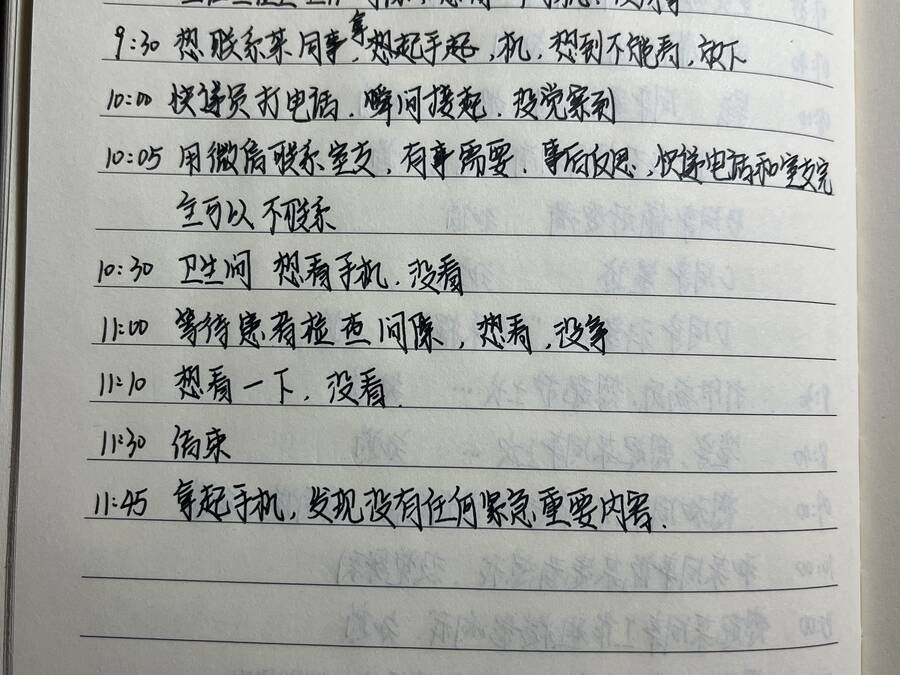 9:30 想联系某同事,拿想起手起,机,想到不能看,放下
10:00 快递员打电话,瞬间接起,没觉察到
10:05 用微信联系室友,有事需要,事后反思,快递电话和室友完
全可以不联系
10:30 卫生间 想看手机,没看
11:00 等待患者检查间隙,想看,没拿
11:10 想看一下,没看.
11:30 结束
11:45 拿起手机,发现没有任何紧急重要内容.